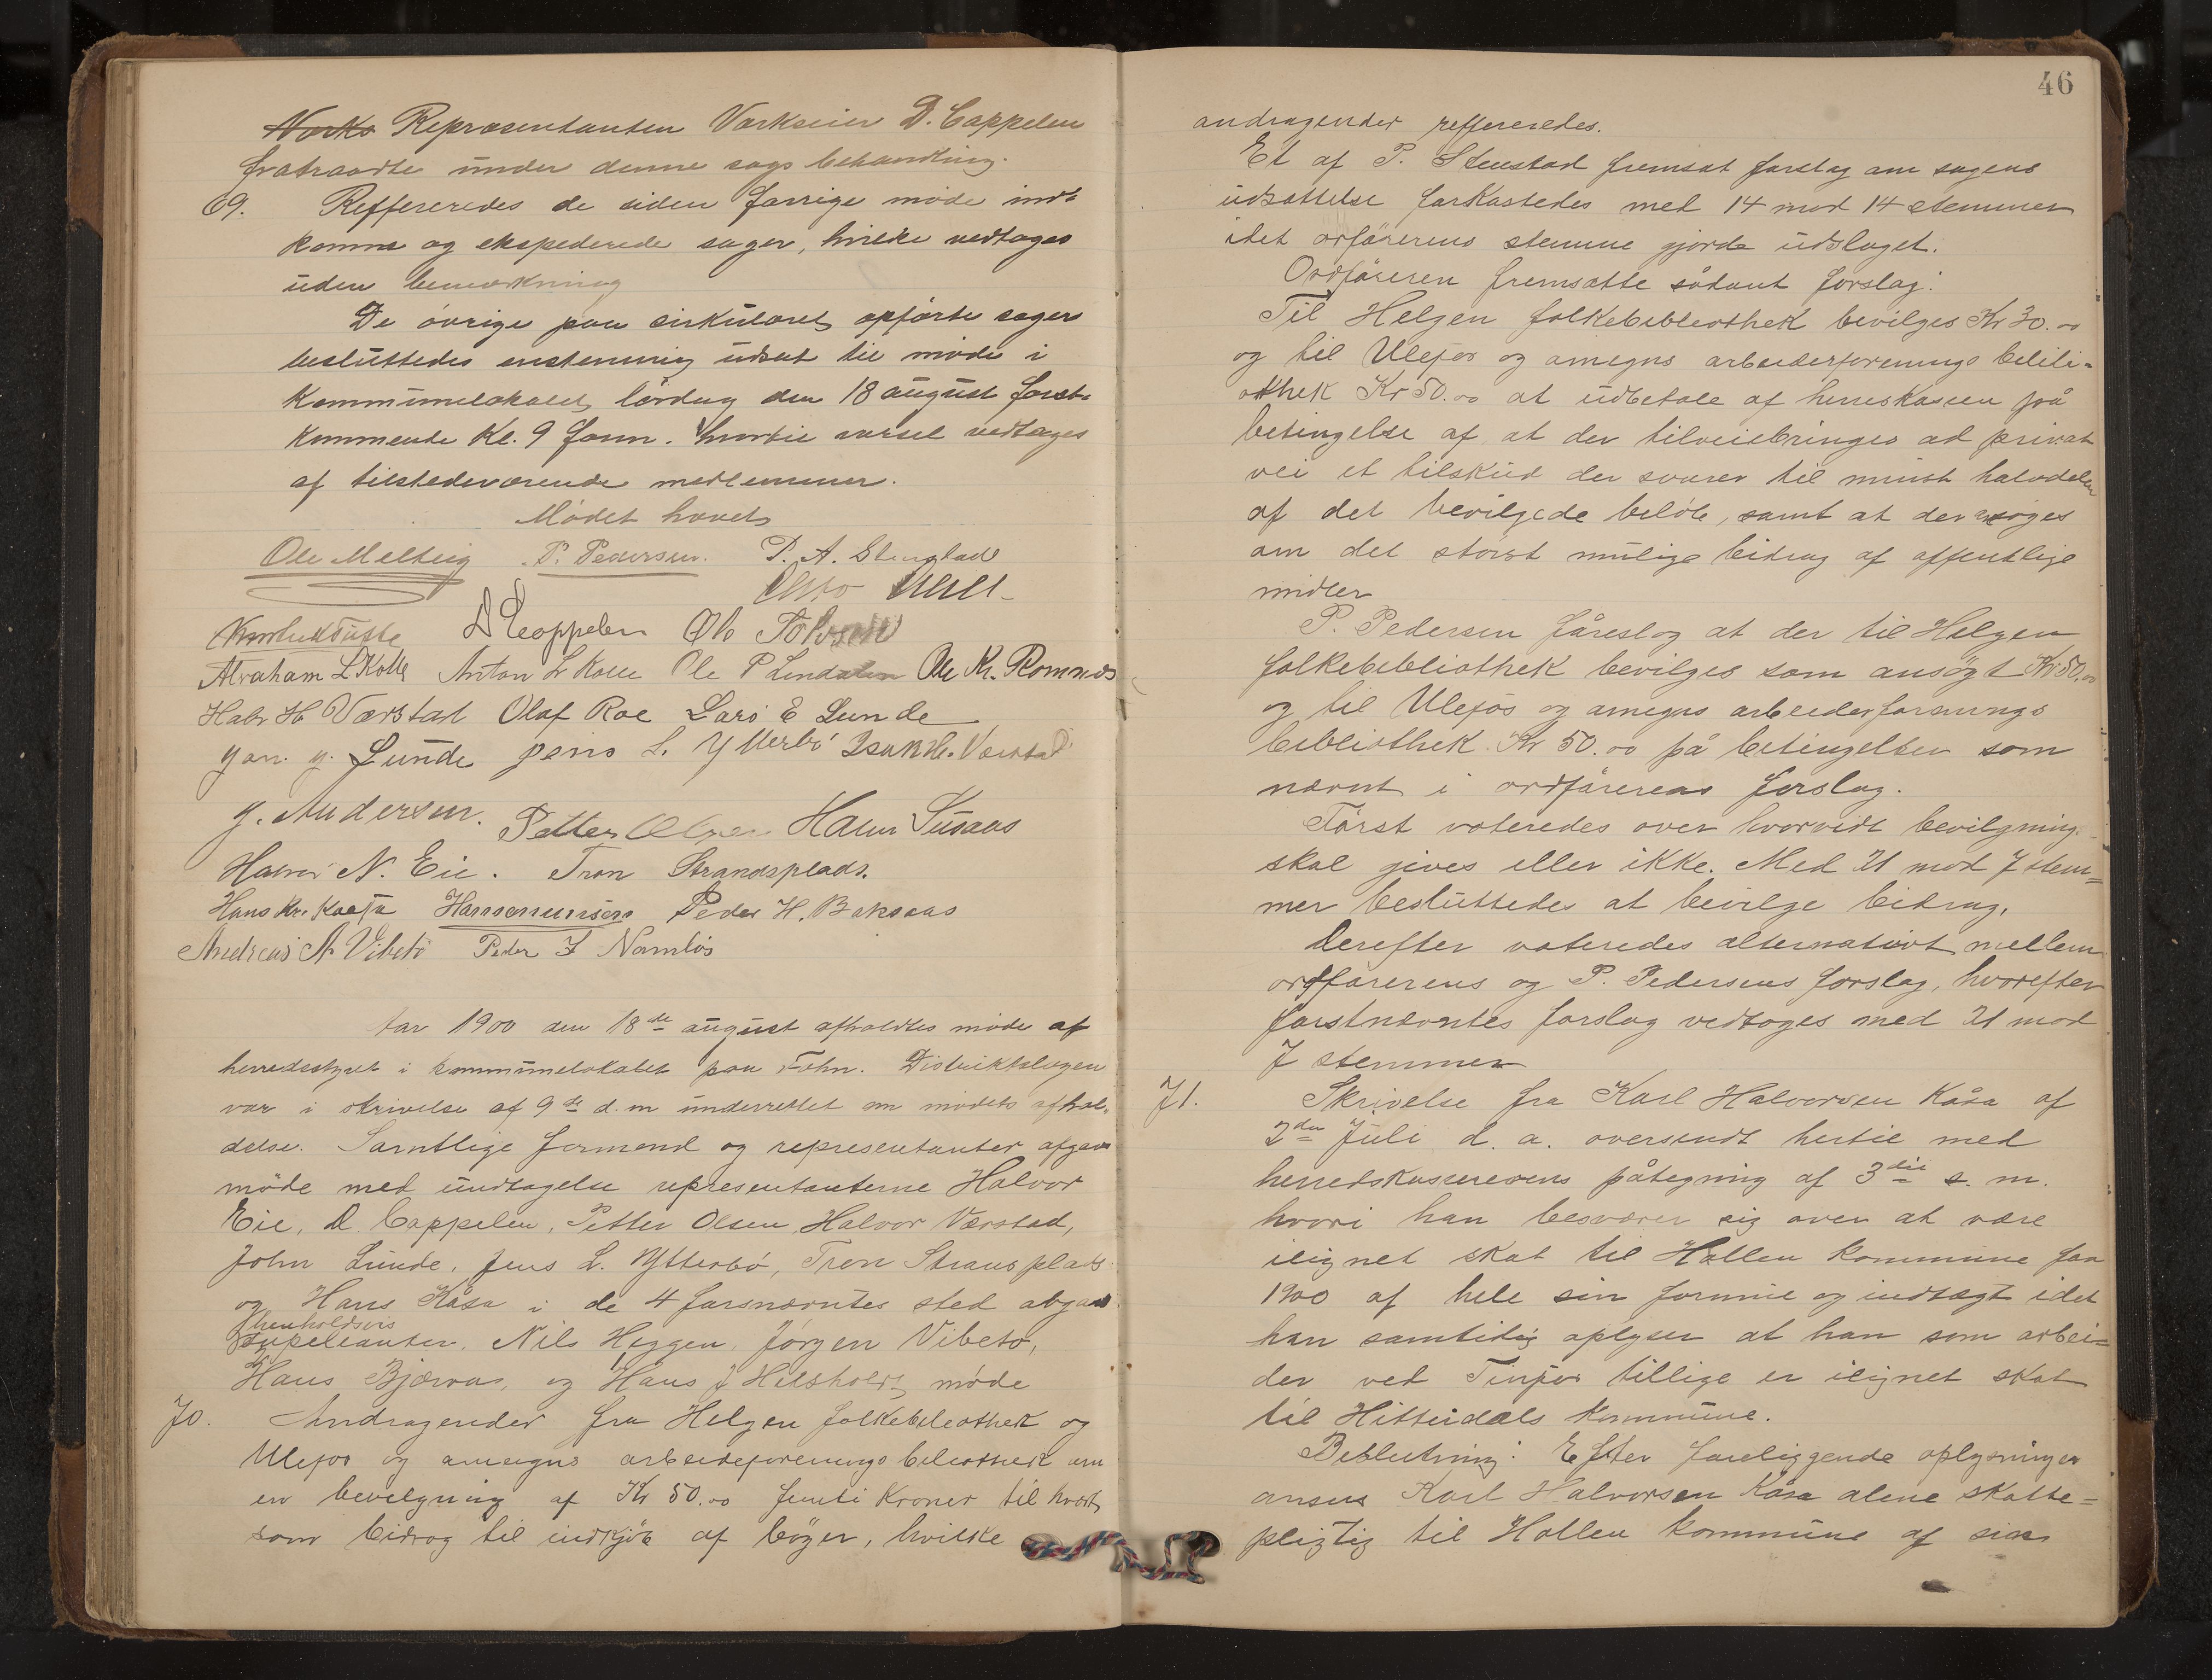 Værks Repræsentanten Værkseier D. Cappelen
fratraadte under denne sags behandling.
69. Reffereredes de siden forrige møde ind-
komne og ekspederede sager, hvilke vedtoges
uden bemærkning
De övrige paa sirkulæret opförte sager
besluttedes enstemmig udsat til møde i
Kommunelokalet lördag den 18 august först-
kommende Kl. 9 form. hvortil varsel vedtages
af tilstedeværende medlemmer.
Mödet hævet
Ole Melteig P. Pedersen. P. A. Stenstad
D Cappelen Ole
Abraham L Kolle Anton L Kolle Ole P Lindalen Ole Kr. Romnes
Halv H Værstad Olaf Roe Lars E Lunde
Jon. J. Lunde Jens L. Ytterbö Isak H. Værstad
J. Andersen. Petter Olsen Hans Susaas
Halvor N. Eie. Tron Strandsplads.
Hans Kr. Kaasa Hans Peder H. Baksaas
Andreas A Vibeto Peder J Namlös
Aar 1900 den 18de august afholdtes møde af
herredsstyret i kommunelokalet paa Fehn. Distriktslægen
var i skrivelse af 9de d. m underrettet om mödets afhol-
delse. Samtlige formend og representanter afgav
möde med undtagelse representanterne Halvor
Eie, D. Cappelen, Petter Olsen, Halvor Værstad,
John Lunde, Jens L. Ytterbö, Tron Stransplads
og Hans Kåsa i de 4 førsnævntes sted afgav
henholdsvis
supeleanter. Nils Heggen, Jørgen Vibeto,
Hans Bjærvas, og Hans J Helsholdt möde
70. Andragender fra Helgen folkebibleothek og
Ulefos og omegns arbeiderforenings bibleothek om
en bevilgning af Kr 50.00 femti Kroner til hvert
som bidrag til indkjöb af böger, hvilke
46
andragender reffereredes.
Et af P. Stenstad fremsat forslag om sagens
udsættelse forkastedes med 14 mod 14 stemmer
idet orförerens stemme gjorde udslaget.
Ordföreren fremsatte sådant forslag:
Til Helgen folkebibliothek bevilges Kr 30.00
og til Ulefos og omegns arbeiderforenings bibli-
othek Kr 50.00 at udbetale af herreskassen på
betingelse af at der tilveiebringes ad privat
vei et tilskud der svarer til minst halvdelen
af det bevilgede belöb, samt at der ansöges
om det störst mulige bidrag af offentlige
midler
P. Pedersen föreslog at der til Helgen
folkebibliothek bevilges som ansögt Kr 50.00
og til Ulefos og omegns arbeiderforenings
bibliothek Kr 50.00 på betingelser som
nævnt i ordförerens forslag.
Först voteredes over hvorvidt bevilgning
skal gives eller ikke. Med 21 mod 7 stem=
mer besluttedes at bevilge bidrag.
Derefter voteredes alternativt mellem
ordförerens og P. Pedersens forslag, hvorefter
förstnævntes forslag vedtoges med 21 mod
7 stemmer
71. Skrivelse fra Karl Halvorsen Kåsa af
2den Juli d. a. oversendt hertil med
herredskassererens påtegning af 3die s. m.
hvori han besværer sig over at være
ilignet skat til Hollen kommune for
1900 af hele sin formue og indtægt idet
han samtidig oplyser at han som arbei=
der ved Tinfos tillige er ilignet skat
til Hitterdals kommune.
Beslutning: Efter foreliggende oplysninger
ansees Karl Halvorsen Kåsa alene skatte=
pligtig til Hollen kommune af sin